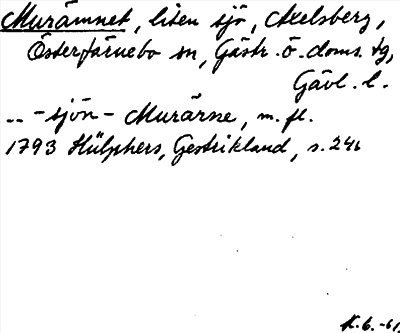 Murämnet, liten sjö, Axelsberg,
Österfärnebo sn, Gästr. ö. doms. tg,
Gävl. l.
.. - sjön - Murärne, m. fl.
1793 Hülphers, Gestrikland, s. 246
K. 6. -61.